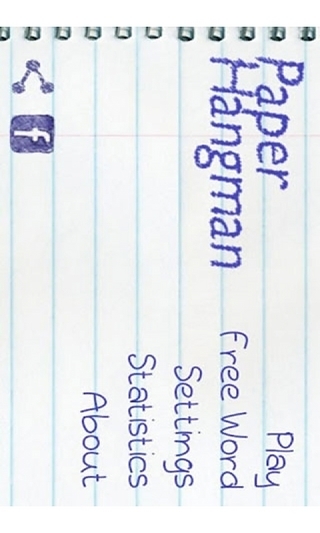 Paper
Hangman
Play
Free Word
Settings
Statistics
About
f